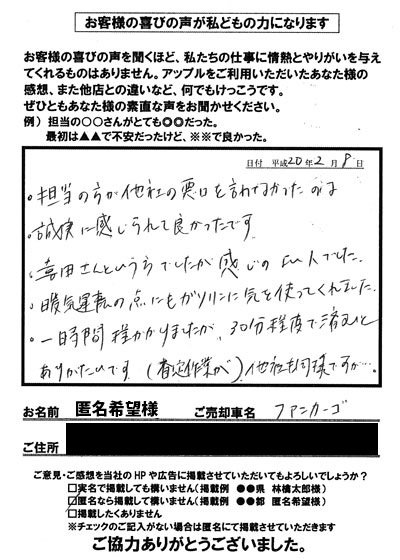 お客様の喜びの声が私どもの力になります
お客様の喜びの声を聞くほど、私たちの仕事に情熱とやりがいを与え
てくれるものはありません。アップルをご利用いただいたあなた様の
感想、また他店との違いなど、何でもけっこうです。
ぜひともあなた様の素直な声をお聞かせください。
例）担当の○○さんがとても◎◎だった。
最初は▲▲で不安だったけど、※※で良かった。
日付 平成20年2月9日
・担当の方が他社の悪口を言わなかったのは
誠実に感じられて良かったです
・喜田さんという方でしたが感じのよい人でした。
・暖気運転の点にもガソリンに気を使ってくれました。
・一時間程かかりましたが、30分程度で済むと
ありがたいです（査定作業が）他社も同様ですが…。
お名前 匿名希望様 ご売却車名 ファンカーゴ
ご住所
ご意見・ご感想を当社のHPや広告に掲載させていただいてもよろしいでしょうか？
□実名で掲載しても構いません（掲載例 ●●県 林檎太郎様）
☑匿名なら掲載して構いません（掲載例 ●●都 匿名希望様）
□掲載したくありません
※チェックのご記入がない場合は匿名にて掲載させていただきます
ご協力ありがとうございました。